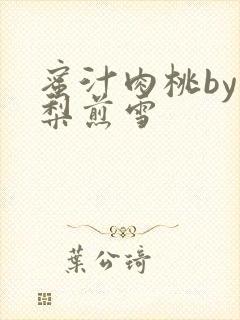 蜜汁肉桃by
梨煎雪
葉公琦